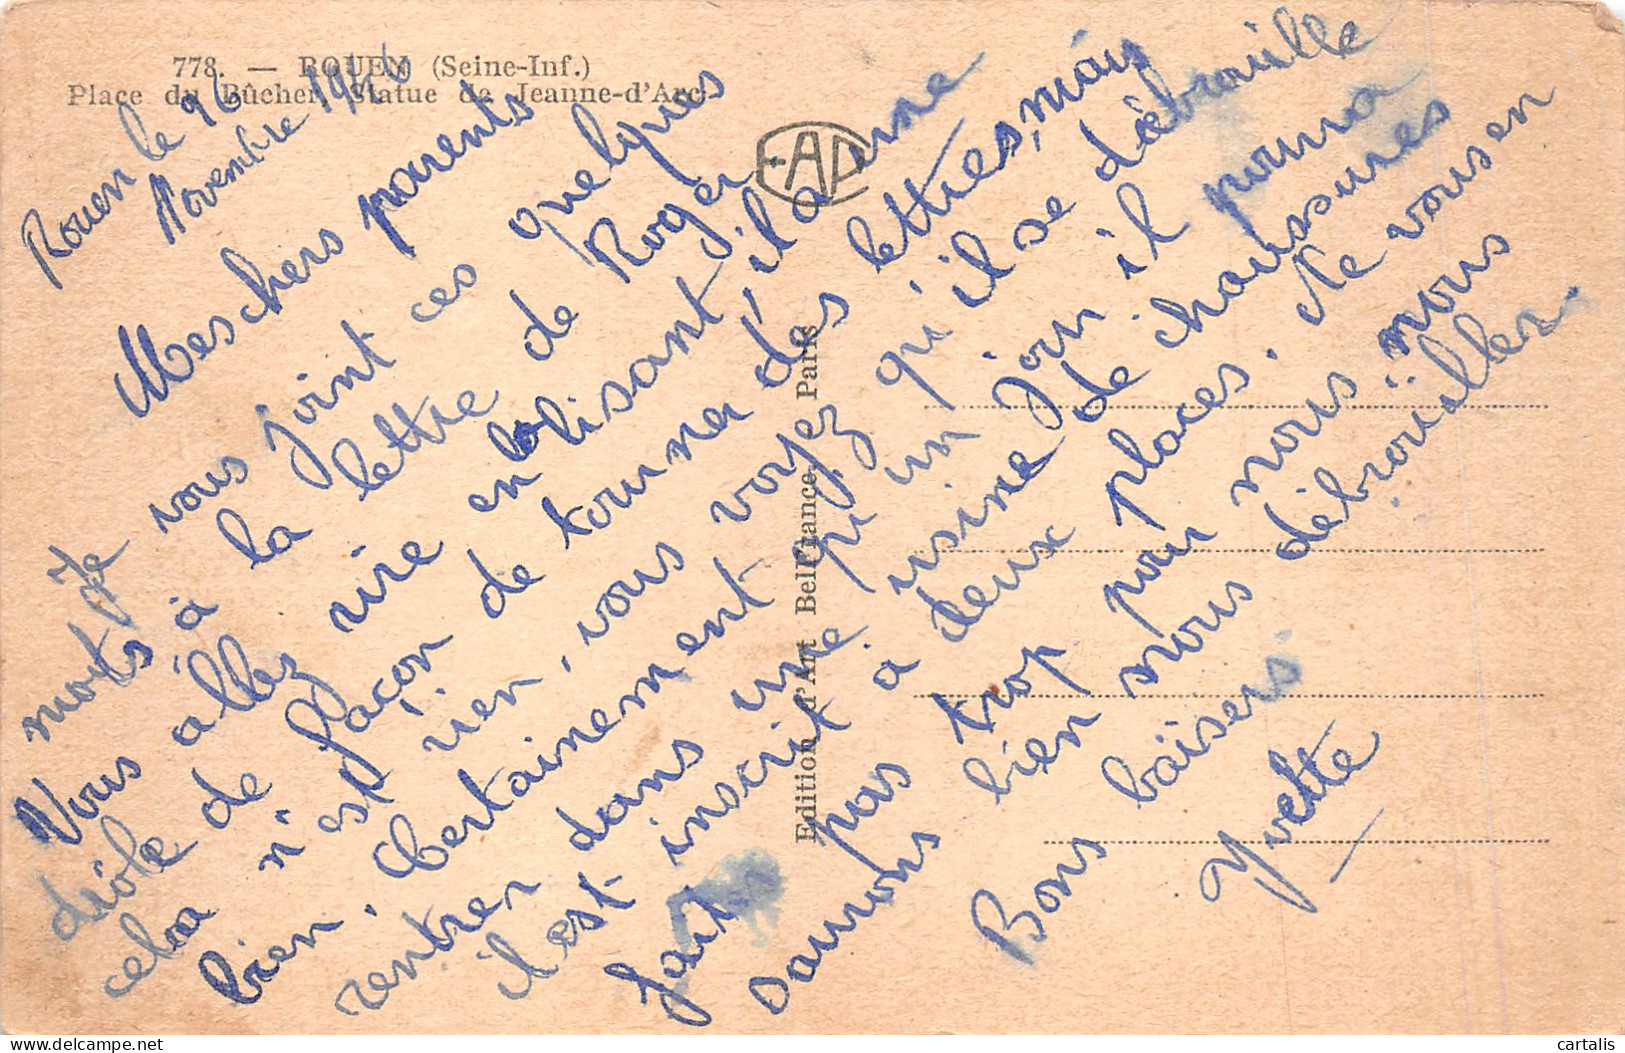 778. — ROUEN (Seine-Inf.)
Place du Bûcher, Statue de Jeanne-d'Arc
EAD
Edition d'Art Belfrance, Paris
Rouen le 26
Novembre 1946
Mes chers parents
Je vous joint ces quelques
mots à la lettre de Roger.
Vous allez rire en la lisant, il a une
drôle de façon de tourner des lettres, mais
cela n'est rien, vous voyez qu'il se débrouille
bien. Certainement qu'un jour il pourra
rentrer dans une usine de chaussures
il est inscrit à deux places. Ne vous en
faites pas trop pour nous, nous
saurons bien nous débrouiller.
Bons baisers
Yvette
cartalis
delcampe.net